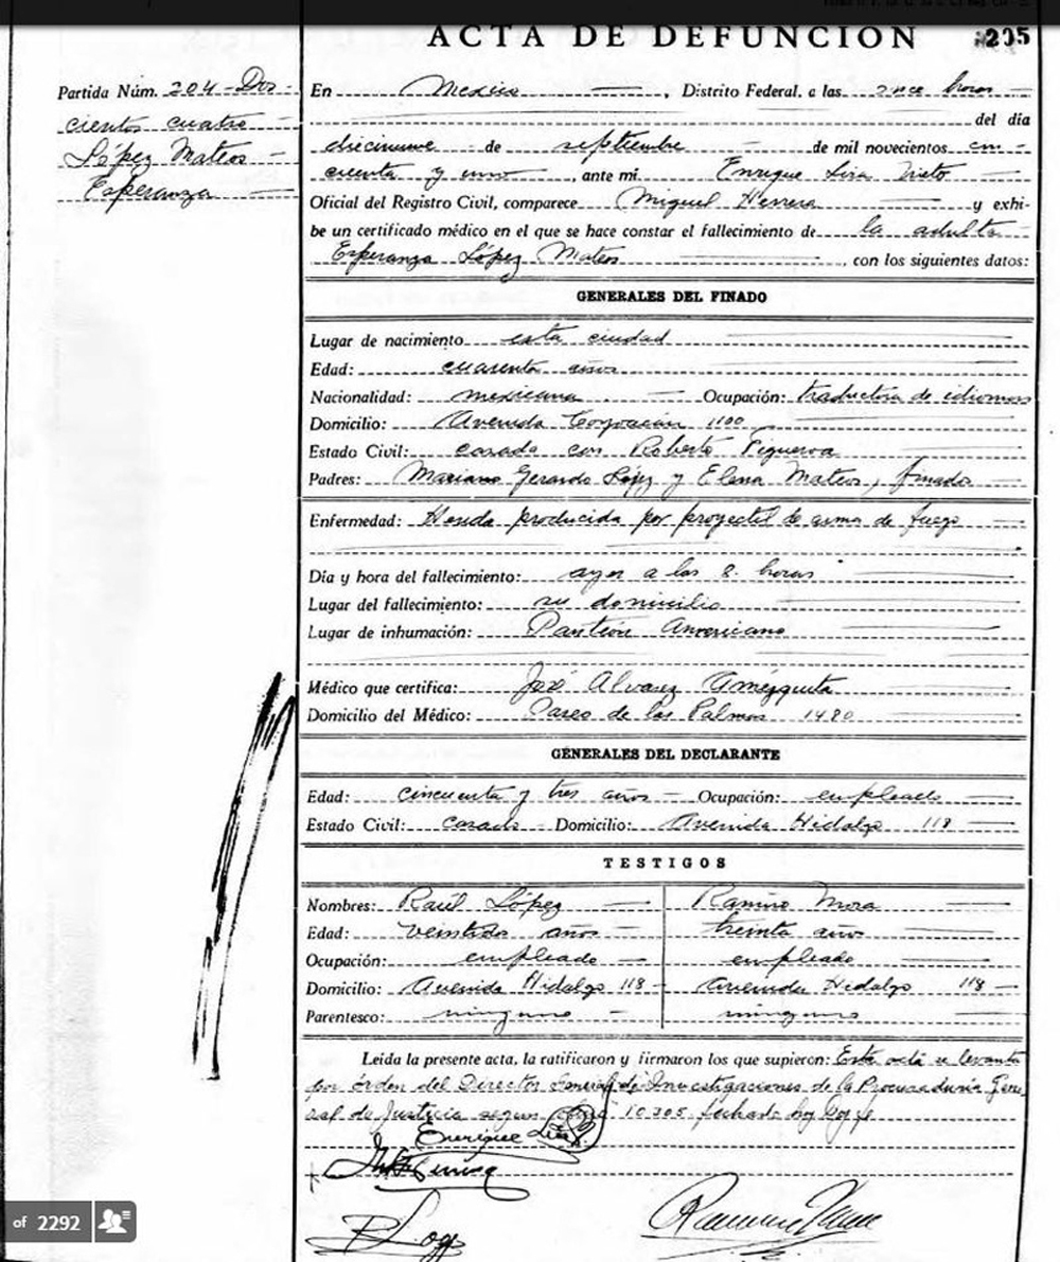 ACTA DE DEFUNCION 205
Partida Núm. 204-Dos-
cientos cuatro
López Mateos
Esperanza
En Mexico, Distrito Federal, a las once horas
del día
diecinueve de septiembre de mil novecientos cin-
cuenta y uno, ante mi Enrique Lira Nieto
Oficial del Registro Civil, comparece Miguel Herrera y exhi-
be un certificado médico en el que se hace constar el fallecimiento de la adulta
Esperanza López Mateos, con los siguientes datos:
GENERALES DEL FINADO
Lugar de nacimiento esta ciudad
Edad: cuarenta años
Nacionalidad: mexicana Ocupación: traductora de idiomas
Domicilio: Avenida Coyoacán 1100
Estado Civil: casada con Roberto Figueroa
Padres: Mariano Gerardo López y Elena Mateos, finados
Enfermedad: Herida producida por proyectil de arma de fuego
Día y hora del fallecimiento: ayer a las 8. horas
Lugar del fallecimiento: su domicilio
Lugar de inhumación: Panteón Americano
Médico que certifica: José Alvarez Amézquita
Domicilio del Médico: Paseo de las Palmas 1480
GENERALES DEL DECLARANTE
Edad: cincuenta y tres años - Ocupación: empleado
Estado Civil: casado - Domicilio: Avenida Hidalgo 118
TESTIGOS
Nombres: Raúl López Ramiro Mora
Edad: veintidos años treinta años
Ocupación: empleado empleado
Domicilio: Avenida Hidalgo 118 Avenida Hidalgo 118
Parentesco: ninguno ninguno
Leida la presente acta, la ratificaron y firmaron los que supieron: Esta acta se levanta
por órden del Director General de Investigaciones de la Procuraduría Gene-
ral de Justicia segun 10205 fechado hoy
Enrique Lira
of 2292